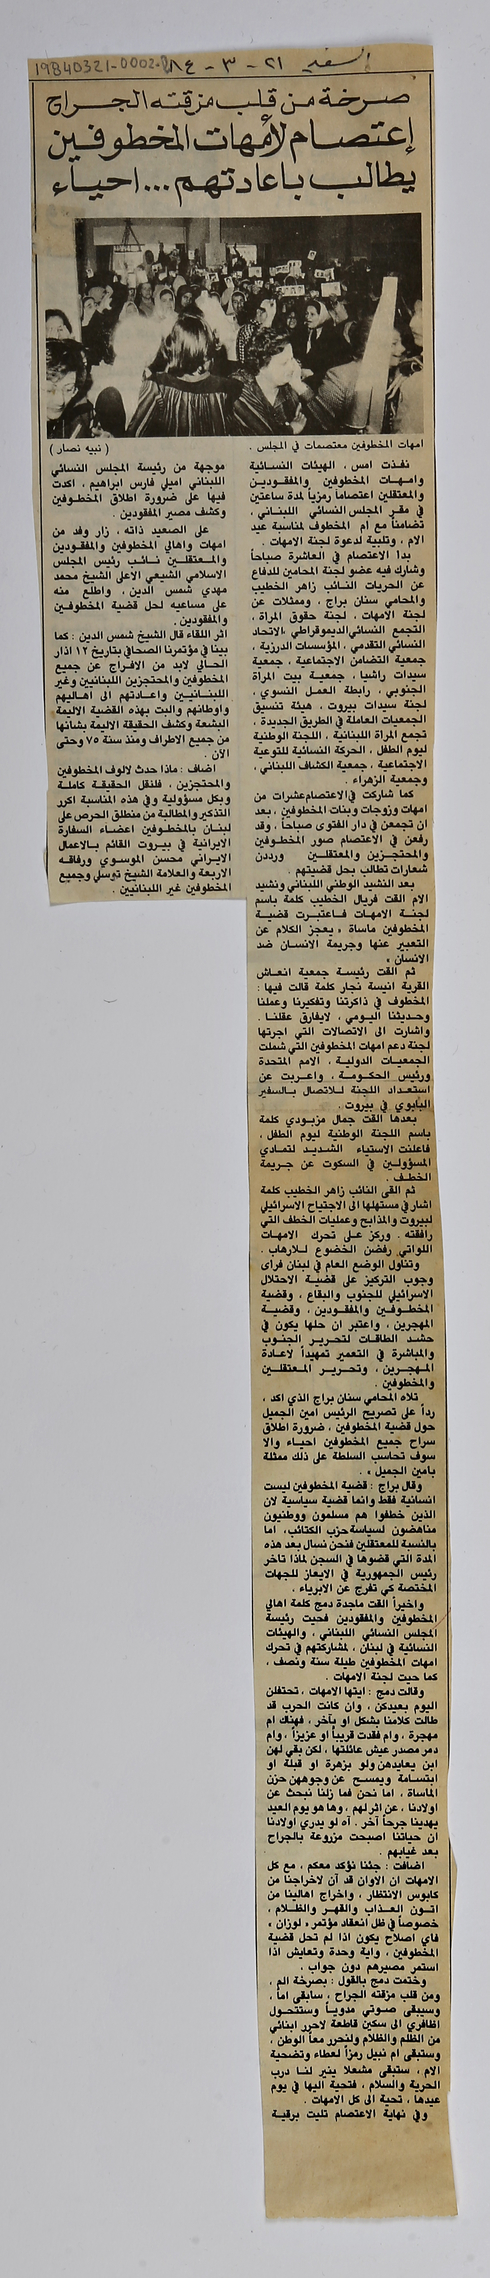 19840321-0002
السفير ٢١ - ٣ - ٨٤
صرخة من قلب مزقته الجراح
إعتصام لأمهات المخطوفين
يطالب باعادتهم ... احياء
امهات المخطوفين معتصمات في المجلس .
( نبيه نصار )
نفذت امس ، الهيئات النسائية
وامهات المخطوفين والمفقودين
والمعتقلين اعتصاماً رمزياً لمدة ساعتين
في مقر المجلس النسائي اللبناني ،
تضامناً مع ام المخطوف لمناسبة عيد
الام ، وتلبية لدعوة لجنة الامهات .
بدا الاعتصام في العاشرة صباحاً
وشارك فيه عضو لجنة المحامين للدفاع
عن الحريات النائب زاهر الخطيب
والمحامي سنان براج ، وممثلات عن
لجنة الامهات ، لجنة حقوق المراة ،
التجمع النسائي الديموقراطي ،الاتحاد
النسائي التقدمي ، المؤسسات الدرزية ،
جمعية التضامن الاجتماعية ، جمعية
سيدات راشيا ، جمعية بيت المراة
الجنوبي ، رابطة العمل النسوي ،
لجنة سيدات بيروت ، هيئة تنسيق
الجمعيات العاملة في الطريق الجديدة ،
تجمع المراة اللبنانية ، اللجنة الوطنية
ليوم الطفل ، الحركة النسائية للتوعية
الاجتماعية ، جمعية الكشاف اللبناني ،
وجمعية الزهراء .
كما شاركت في الاعتصام عشرات من
امهات وزوجات وبنات المخطوفين ، بعد
ان تجمعن في دار الفتوى صباحاً ، وقد
رفعن في الاعتصام صور المخطوفين
والمحتجزين والمعتقلين ورددن
شعارات تطالب بحل قضيتهم .
بعد النشيد الوطني اللبناني ونشيد
الام القت فريال الخطيب كلمة باسم
لجنة الامهات فاعتبرت قضية
المخطوفين ماساة « يعجز الكلام عن
التعبير عنها وجريمة الانسان ضد
الانسان »
ثم القت رئيسة جمعية انعاش
القرية انيسة نجار كلمة قالت فيها :
المخطوف في ذاكرتنا وتفكيرنا وعملنا
وحديثنا اليومي ، لايفارق عقلنا .
واشارت الى الاتصالات التي اجرتها
لجنة دعم امهات المخطوفين التي شملت
الجمعيات الدولية ، الامم المتحدة
ورئيس الحكومة ، واعربت عن
استعداد اللجنة للاتصال بالسفير
البابوي في بيروت .
بعدها القت جمال مزبودي كلمة
باسم اللجنة الوطنية ليوم الطفل ،
فاعلنت الاستياء الشديد لتمادي
المسؤولين في السكوت عن جريمة
الخطف .
ثم القى النائب زاهر الخطيب كلمة
اشار في مستهلها الى الاجتياح الاسرائيلي
لبيروت والمذابح وعمليات الخطف التي
رافقته . وركز على تحرك الامهات
اللواتي رفضن الخضوع للارهاب .
وتناول الوضع العام في لبنان فراى
وجوب التركيز على قضية الاحتلال
الاسرائيلي للجنوب والبقاع ، وقضية
المخطوفين والمفقودين ، وقضية
المهجرين ، واعتبر ان حلها يكون في
حشد الطاقات لتحرير الجنوب
والمباشرة في التعمير تمهيداً لاعادة
المهجرين ، وتحرير المعتقلين
والمخطوفين .
تلاه المحامي سنان براج الذي اكد ،
رداً على تصريح الرئيس امين الجميل
حول قضية المخطوفين ، ضرورة اطلاق
سراح جميع المخطوفين احياء والا
سوف تحاسب السلطة على ذلك ممثلة
بامين الجميل » .
وقال براج : قضية المخطوفين ليست
انسانية فقط وانما قضية سياسية لان
الذين خطفوا هم مسلمون ووطنيون
مناهضون لسياسة حزب الكتائب ، اما
بالنسبة للمعتقلين فنحن نسال بعد هذه
المدة التي قضوها في السجن لماذا تاخر
رئيس الجمهورية في الايعاز للجهات
المختصة كي تفرج عن الابرياء .
واخيراً القت ماجدة دمج كلمة اهالي
المخطوفين والمفقودين فحيت رئيسة
المجلس النسائي اللبناني ، والهيئات
النسائية في لبنان ، لمشاركتهم في تحرك
امهات المخطوفين طيلة سنة ونصف ،
كما حيت لجنة الامهات .
وقالت دمج : ايتها الامهات ، تحتفلن
اليوم بعيدكن ، وان كانت الحرب قد
طالت كلامنا بشكل او بآخر ، فهناك ام
مهجرة ، وام فقدت قريباً او عزيزاً ، وام
دمر مصدر عيش عائلتها ، لكن بقي لهن
ابن يعايدهن ولو بزهرة او قبلة او
ابتسامة ويمسح عن وجوههن حزن
الماساة ، اما نحن فما زلنا نبحث عن
اولادنا ، عن اثر لهم ، وها هو يوم العيد
يهدينا جرحاً آخر . آه لو يدري أولادنا
ان حياتنا اصبحت مزروعة بالجراح
بعد غيابهم .
اضافت : جئنا نؤكد معكم ، مع كل
الامهات ان الاوان قد آن لاخراجنا من
كابوس الانتظار ، واخراج اهالينا من
اتون العذاب والقهر والظلام ،
خصوصاً في ظل انعقاد مؤتمر « لوزان »
فاي اصلاح يكون اذا لم تحل قضية
المخطوفين ، واية وحدة وتعايش اذا
استمر مصيرهم دون جواب .
وختمت دمج بالقول : بصرخة الم ،
ومن قلب مزقته الجراح ، سابقى اماً ،
وسيبقى صوتي مدوياً وستتحول
اظافري الى سكين قاطعة لاحرر ابنائي
من الظلم والظلام ولنحرر معاً الوطن ،
وستبقى ام نبيل رمزاً لعطاء وتضحية
الام ، ستبقى مشعلا ينير لنا درب
الحرية والسلام ، فتحية اليها في يوم
عيدها ، تحية الى كل الامهات .
وفي نهاية الاعتصام تليت برقية
موجهة من رئيسة المجلس النسائي
اللبناني اميلي فارس ابراهيم ، اكدت
فيها على ضرورة اطلاق المخطوفين
وكشف مصير المفقودين .
على الصعيد ذاته ، زار وفد من
امهات واهالي المخطوفين والمفقودين
والمعتقلين نائب رئيس المجلس
الاسلامي الشيعي الاعلى الشيخ محمد
مهدي شمس الدين ، واطلع منه
على مساعيه لحل قضية المخطوفين
والمفقودين .
اثر اللقاء قال الشيخ شمس الدين : كما
بينا في مؤتمرنا الصحافي بتاريخ ١٢ اذار
الحالي لابد من الافراج عن جميع
المخطوفين والمحتجزين اللبنانيين وغير
اللبنانيين واعادتهم الى اهاليهم
واوطانهم والبت بهذه القضية الاليمة
البشعة وكشف الحقيقة الاليمة بشانها
من جميع الاطراف ومنذ سنة ٧٥ وحتى
الآن .
اضاف : ماذا حدث لالوف المخطوفين
والمحتجزين ، فلنقل الحقيقة كاملة
وبكل مسؤولية وفي هذه المناسبة اكرر
التذكير والمطالبة من منطلق الحرص على
لبنان بالمخطوفين اعضاء السفارة
الايرانية في بيروت القائم بالاعمال
الايراني محسن الموسوي ورفاقه
الاربعة والعلامة الشيخ توسلي وجميع
المخطوفين غير اللبنانيين .